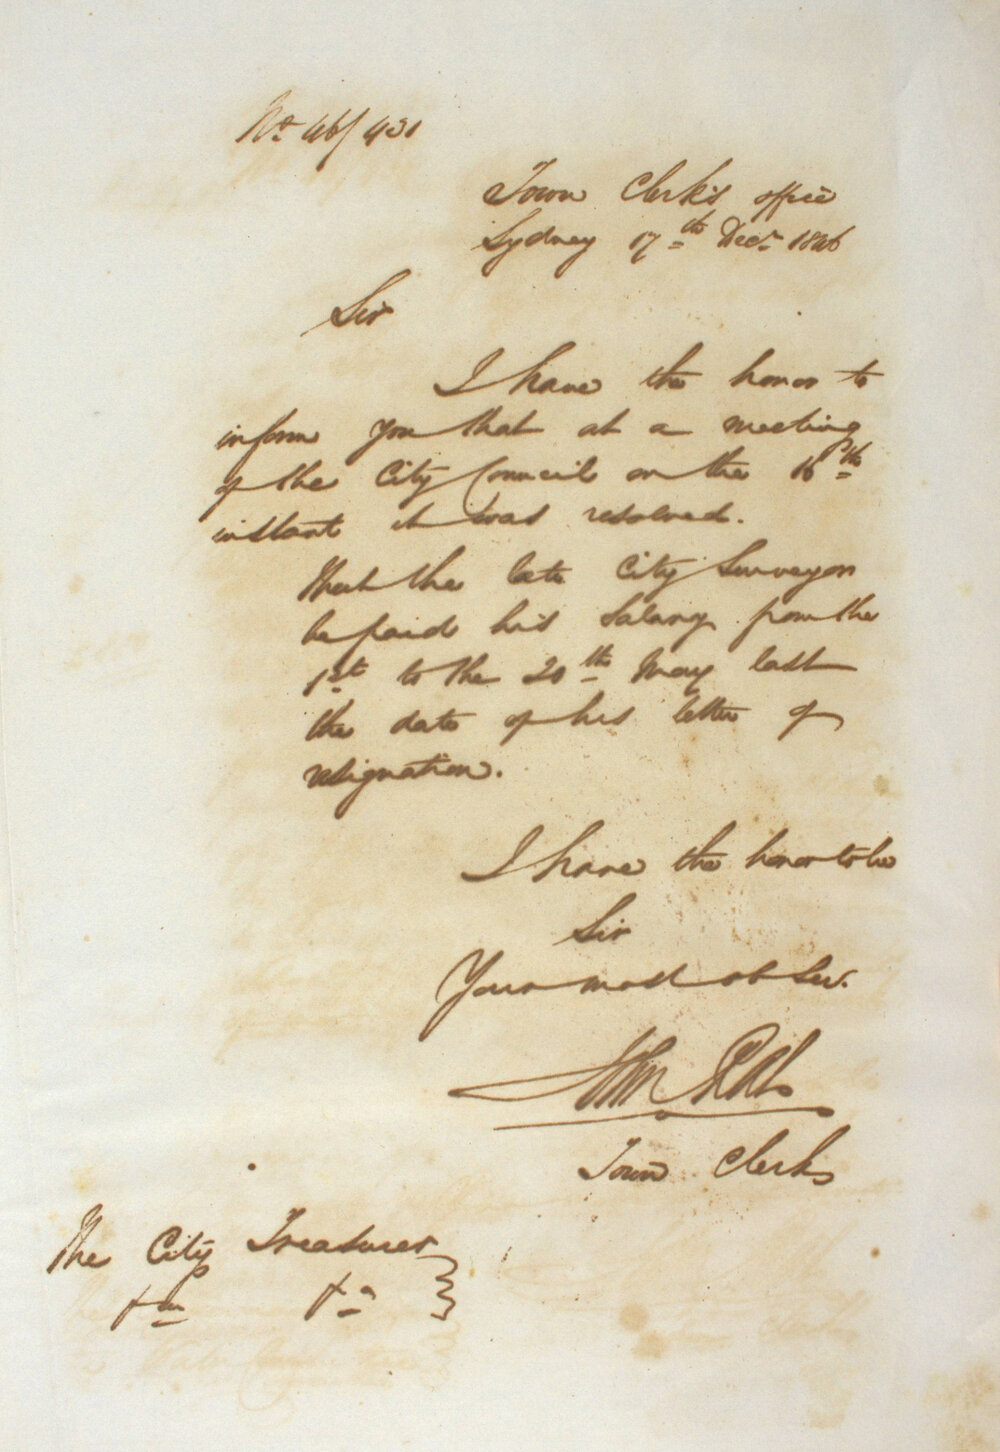 No. 46/431
Town Clerk's office
Sydney 17th Decr 1846
Sir
I have the honor to
inform you that at a meeting
of the City Council on the 16th
instant it was resolved.
That the late City Surveyor
be paid his Salary from the
1st to the 20th May last
the date of his letter of
resignation.
I have the honor to be
Sir
Your most ob Ser.
John
Town Clerk
The City Treasurer
&c &c